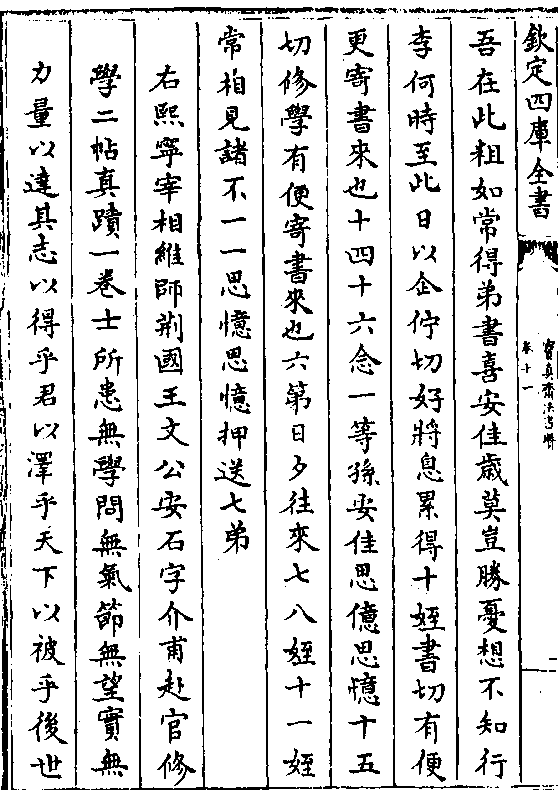 欽定四庫全書
寶真齋法書贊
卷十一
吾在此粗如常得弟書喜安佳歲莫豈勝憂想不知行
李何時至此日以企佇切好將息累得十姪書切有便
更寄書來也十四十六念一等孫安佳思億思憶十五
切修學有便寄書來也六第日夕往來七八姪十一姪
常相見諸不一一思憶思憶押送七弟
右熙寧宰相維師荆國王文公安石字介甫赴官修
學二帖真蹟一卷士所患無學問無氣節無望實無
力量以達其志以得乎君以澤乎天下以被乎後世